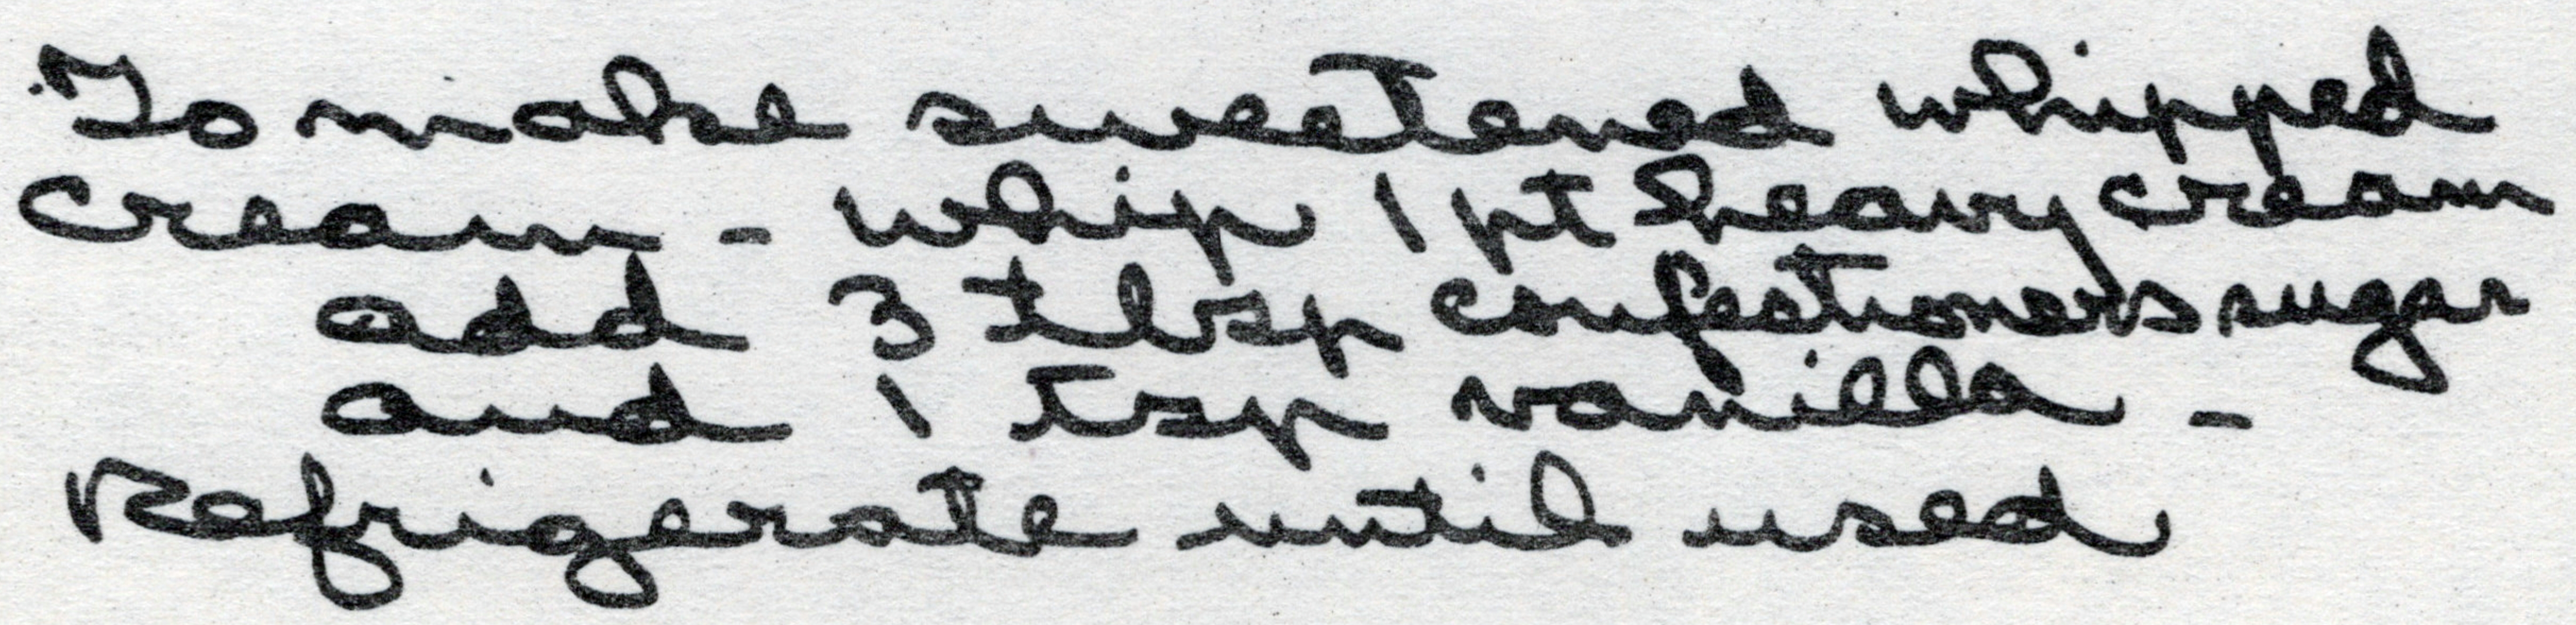 To make sweetened whipped
cream - whip 1 pt heavy cream
add 3 tblsp confectioners sugar
and 1 tsp vanilla -
Refrigerate until used